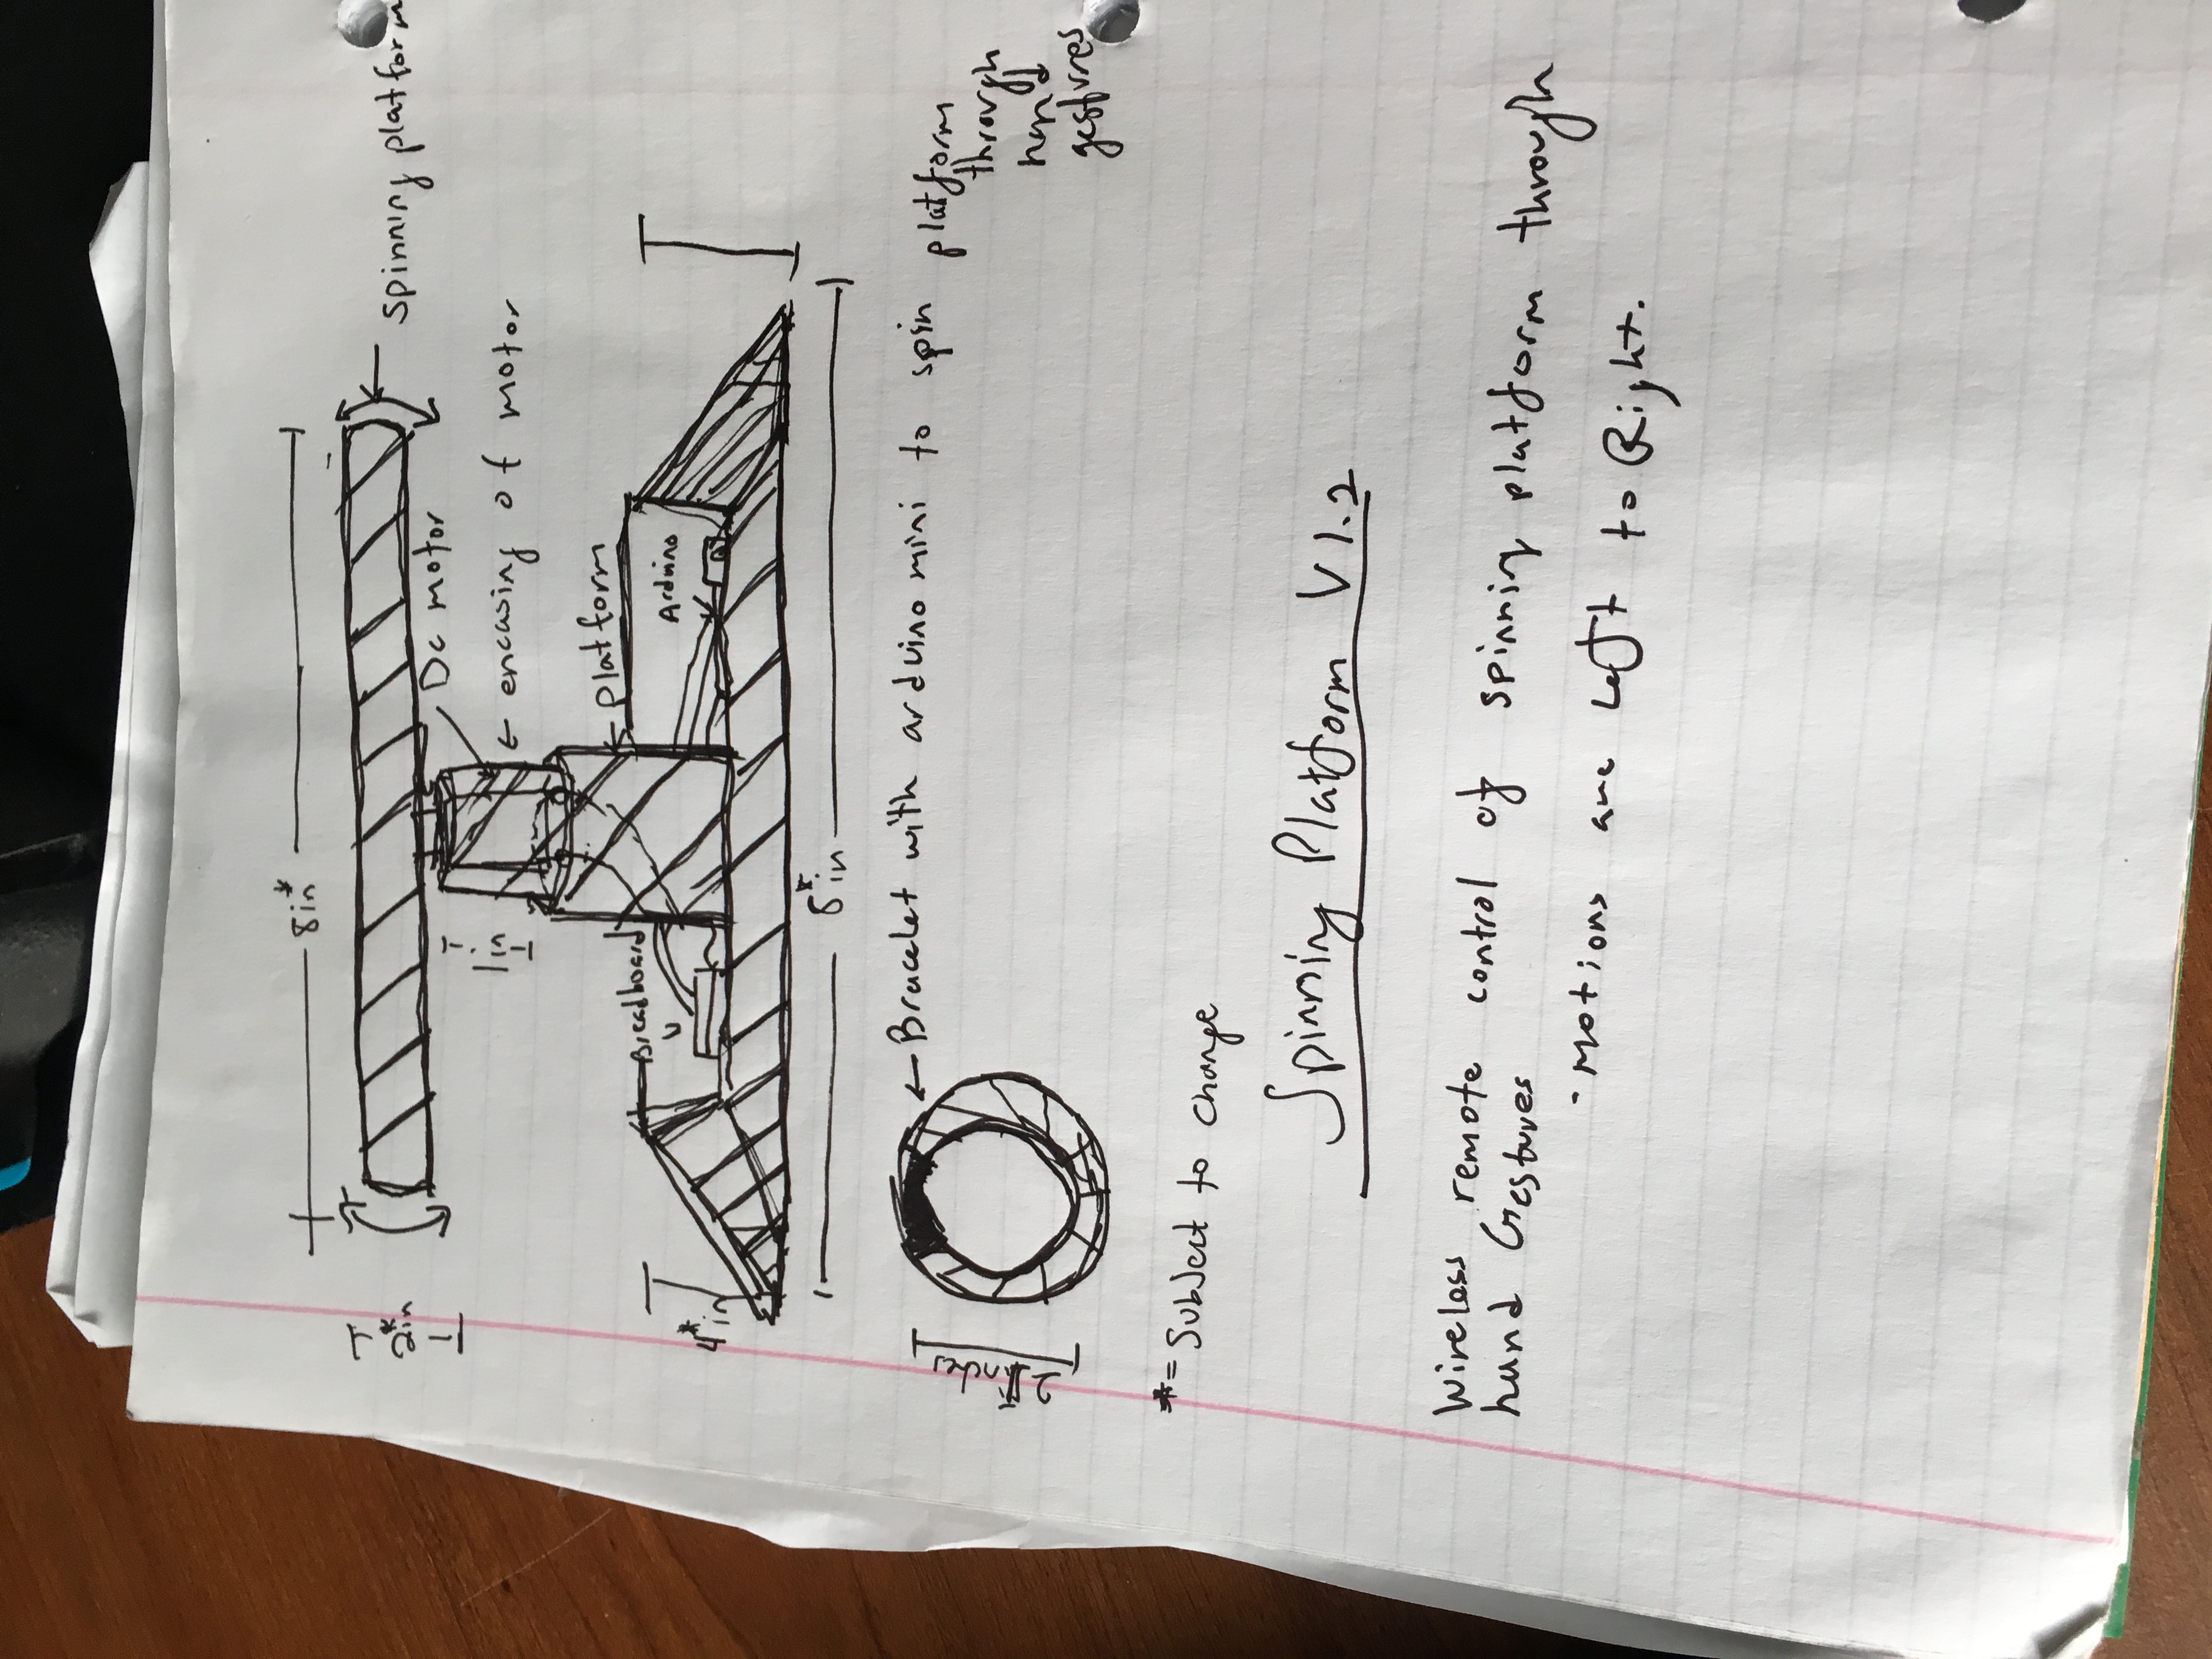 8in*
2*in
spinning platform
Dc motor
1in
← encasing of motor
← platform
Breadboard
Arduino
4*in
8*in
← Bracelet with arduino mini to spin platform
through
hand
gestures
*= Subject to change
Spinning Platform V 1.2
Wireless remote control of spinning platform through
hand Gestures
- Motions are Left to Right.